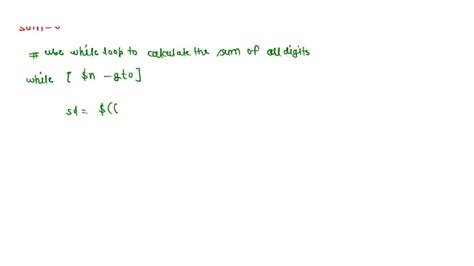 sum=0
# use while loop to calculate the sum of all digits
while [ $n -gt0]
sd= $((